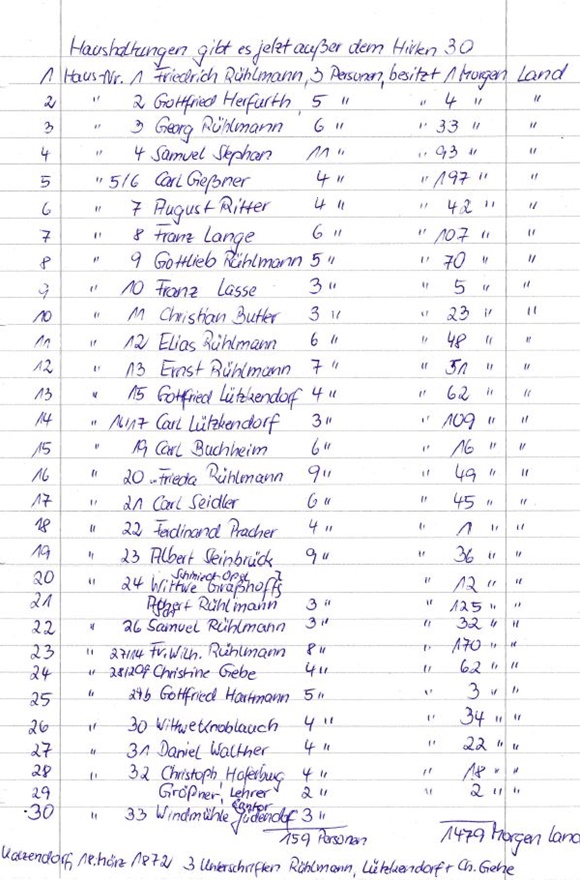 Haushaltungen gibt es jetzt außer dem Hirten 30
1 Haus-Nr. 1 Friedrich Rühlmann, 3 Personen, besitzt 1 Morgen Land
2 " 2 Gottfried Herfurth 5 " " 4 " "
3 " 3 Georg Rühlmann 6 " " 33 " "
4 " 4 Samuel Stephan 11 " " 93 " "
5 " 5/6 Carl Geßner 4 " " 197 " "
6 " 7 August Ritter 4 " " 42 " "
7 " 8 Franz Lange 6 " " 107 " "
8 " 9 Gottlieb Rühlmann 5 " " 70 " "
9 " 10 Franz Lasse 3 " " 5 " "
10 " 11 Christian Butler 3 " " 23 " "
11 " 12 Elias Rühlmann 6 " " 48 " "
12 " 13 Ernst Rühlmann 7 " " 51 " "
13 " 15 Gottfried Lützkendorf 4 " " 62 " "
14 " 16/17 Carl Lützkendorf 3 " " 109 " "
15 " 19 Carl Buchheim 6 " " 16 " "
16 " 20 Frieda Rühlmann 9 " " 49 " "
17 " 21 Carl Seidler 6 " " 45 " "
18 " 22 Ferdinand Pracher 4 " " 1 " "
19 " 23 Albert Steinbrück 9 " " 36 " "
20 " 24 Wittwe Graßhoffs " 12 " "
21 Albert Rühlmann 3 " " 125 " "
22 " 26 Samuel Rühlmann 3 " " 32 " "
23 " 27/14 Fr. Wilh. Rühlmann 8 " " 170 " "
24 " 28/29a Christine Gebe 4 " " 62 " "
25 " 29b Gottfried Hartmann 5 " " 3 " "
26 " 30 Wittwe Knoblauch 4 " " 34 " "
27 " 31 Daniel Walther 4 " " 22 " "
28 " 32 Christoph Haferburg 4 " " 18 " "
29 Größner, Lehrer 2 " " 2 " "
Kantor
30 " 33 Windmühle Jüdendorf 3 "
159 Personen 1479 Morgen Land
Katzendorf, 18. März 1872 3 Unterschriften Rühlmann, Lützkendorf + Ch. Gehe